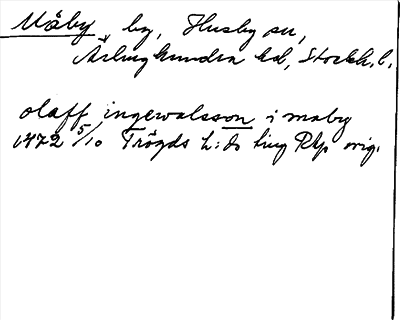 Måby, by, Husby sn,
Ärlinghundra hd, Stockh. l.
olaff ingewalsson i maby
1472 5/10 Trögds h:ds ting RAp orig.